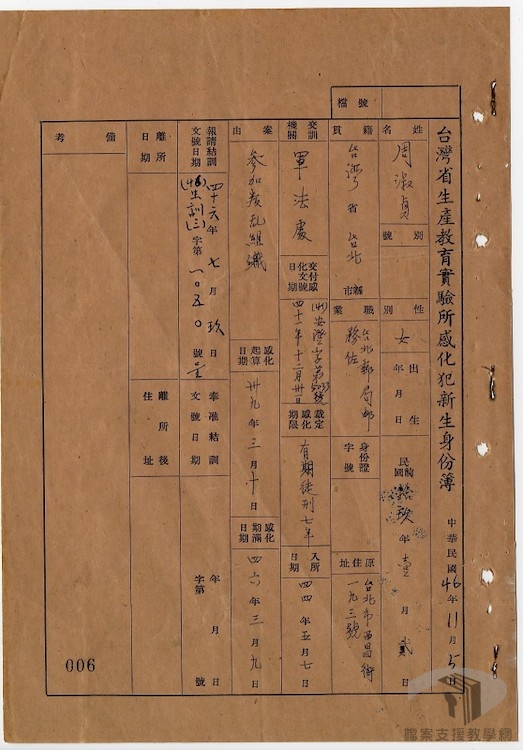 台灣省生產教育實驗所感化犯新生身份簿
中華民國46年11月5日
號檔
姓名 周淑貞
別號
性別 女
出生年月日 民國前 拾玖年壹月貳日
籍貫 台灣省台北縣市
職業 台北郵局郵務佐
身份證字號
原住址 台北市西昌街一九三號
交訓機關 軍法處
交付感化文號日期 (41)安澄字第 號 四十一年十二月卅一日
裁定感化期限 有期徒刑七年
入所日期 四四年五月七日
案由 參加叛乱組織
感化起算日期 卅九年三月十日
感化期滿日期 四六年三月九日
報請結訓文號日期 四十六年七月玖日
(46)生訓(三)字第一〇五〇號
奉准結訓文號日期 年月日
字第 號
離所日期
離所後住址
備考
006
檔案支援教學網